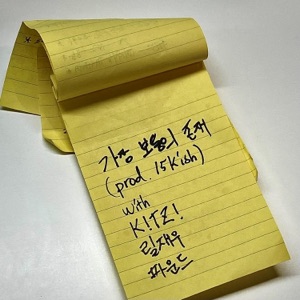 가장 보통의 존재
(prod. 15K!sh)
with
K!TZ!
릴재우
파운드